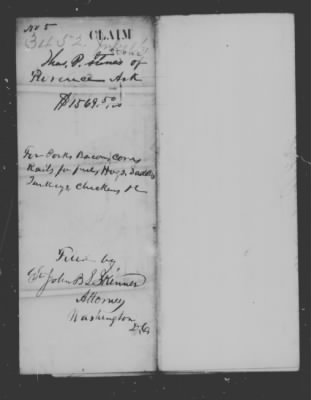 No 5
CLAIM
3452
Thos. P. of
Florence Ark
$1569.50
For Pork, Bacon, Corn
Rails for fuel, Hogs, Saddle
Turkeys, Chickens &c
Filed by
John B. L. Skinner
Attorney
Washington
D.C.